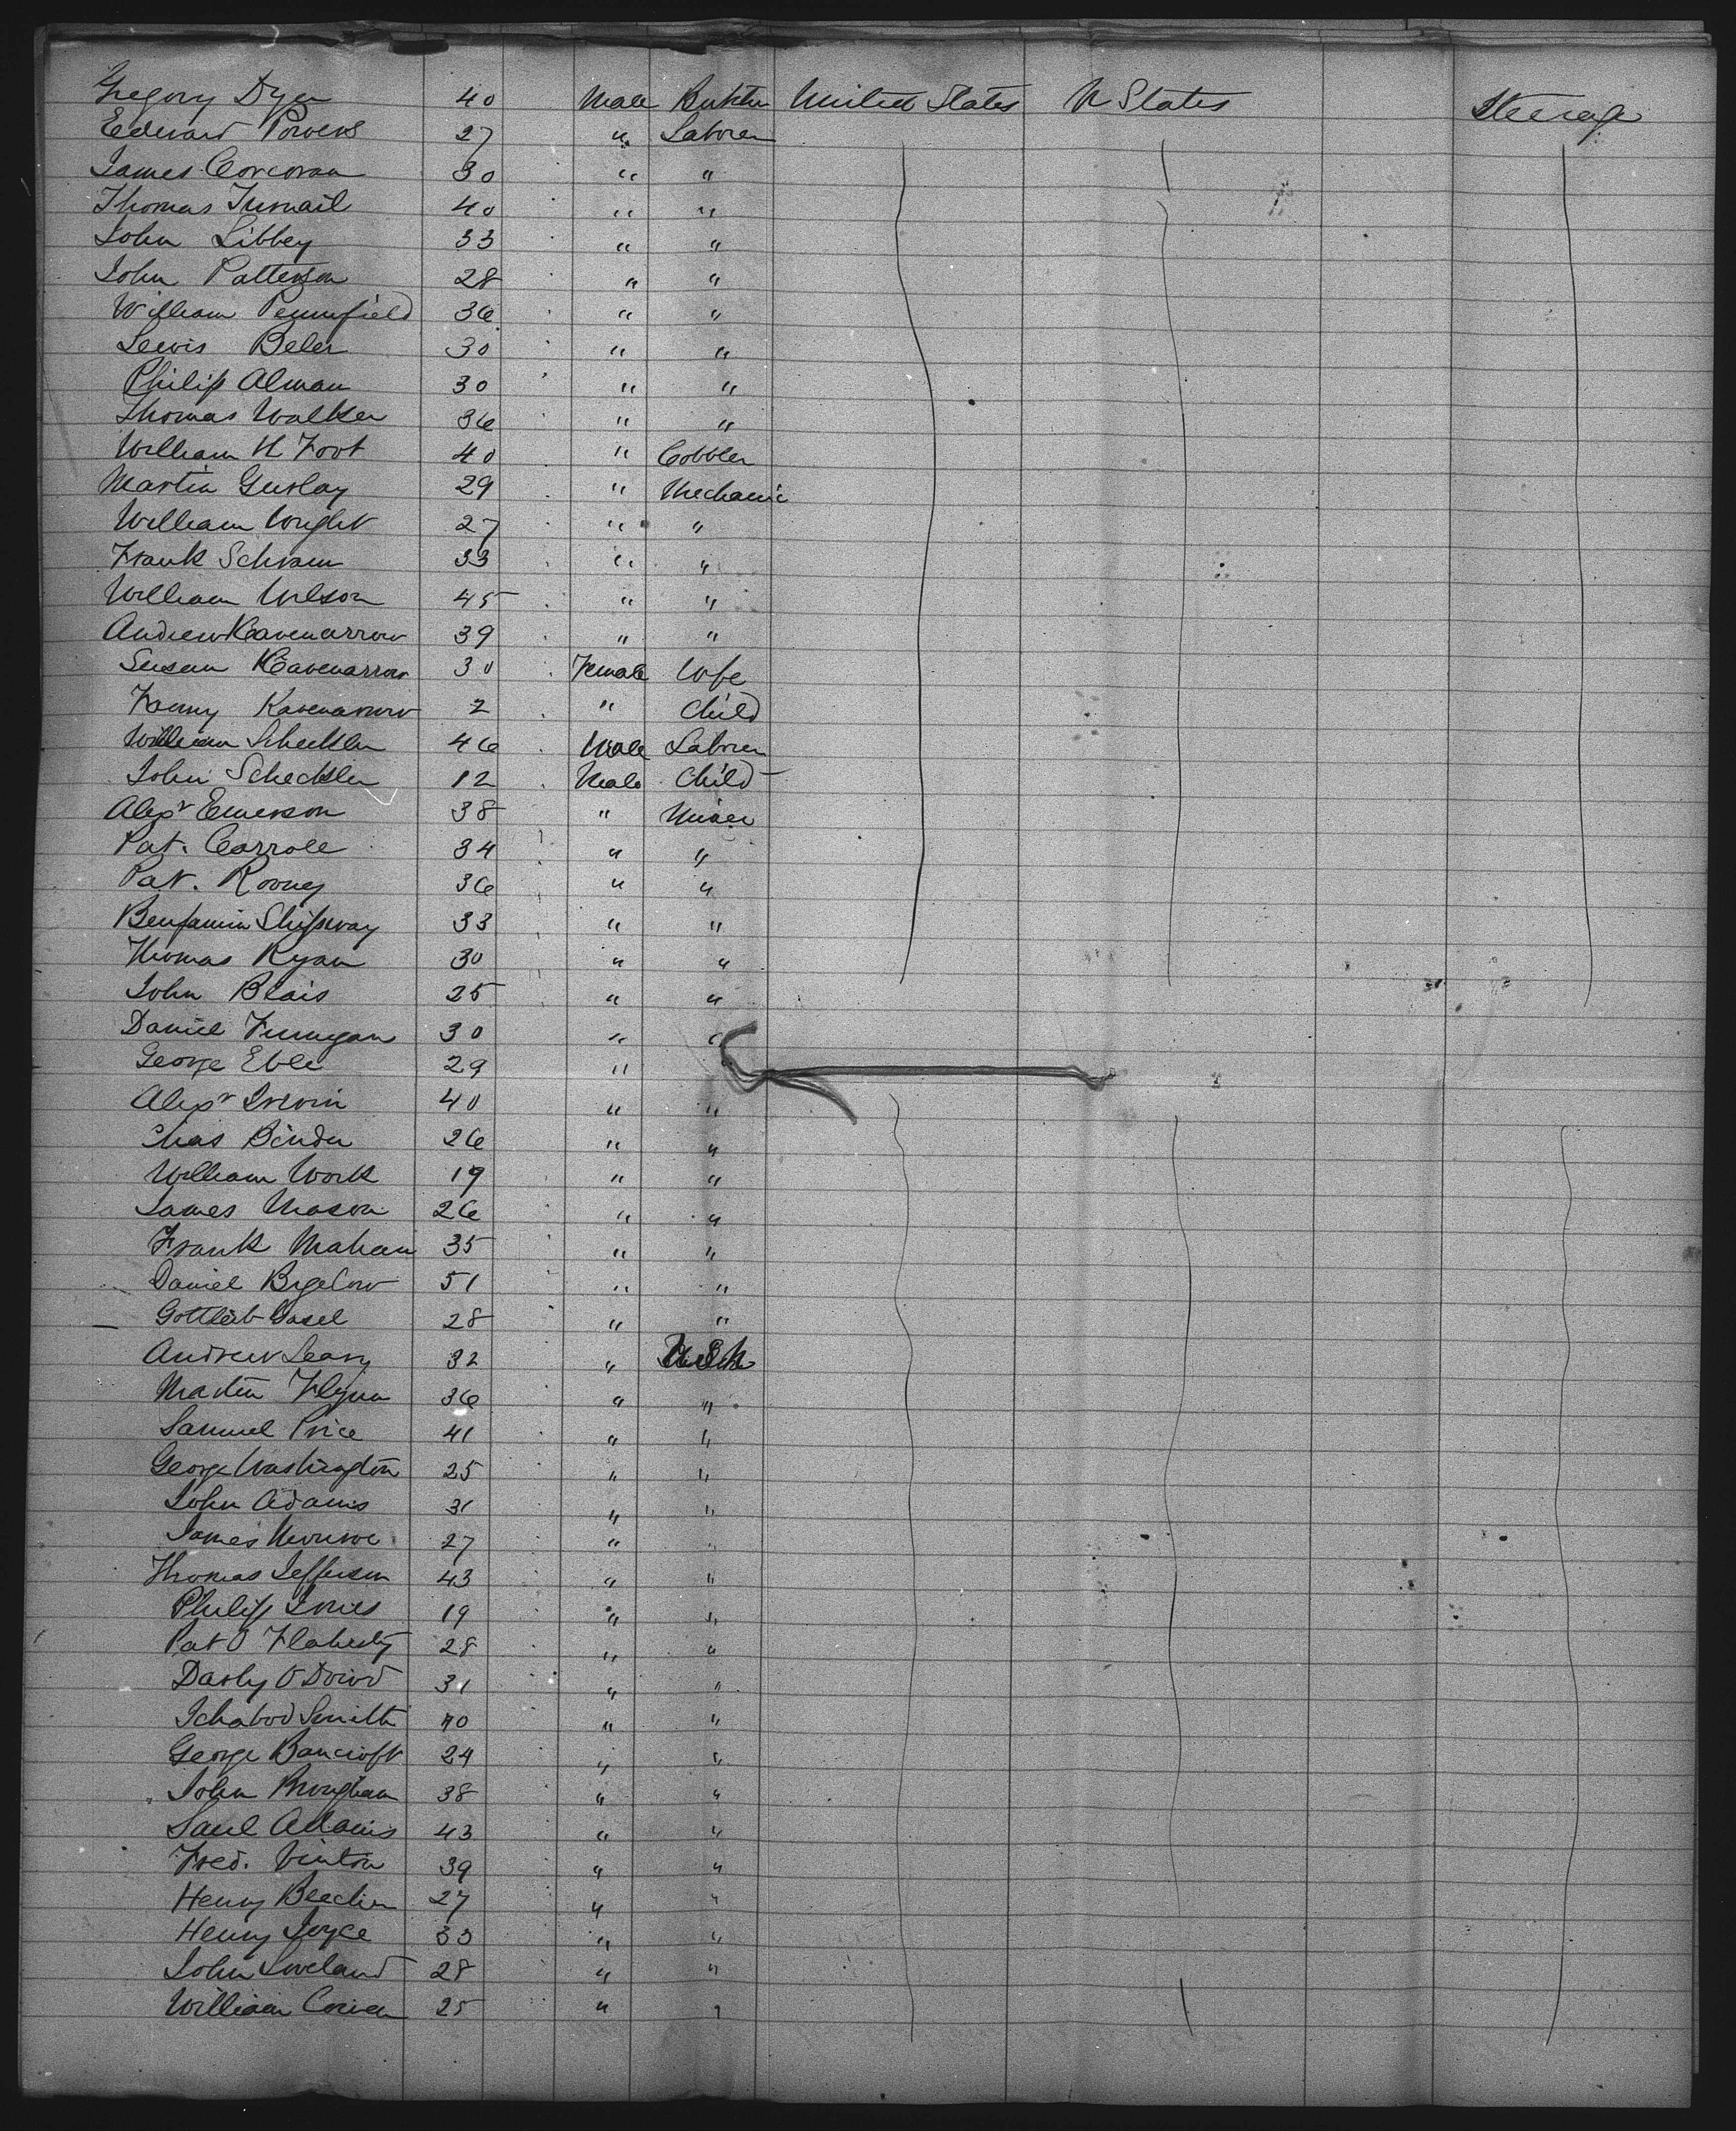 Gregory Dyer 40 Male Butcher United States U States Steerage
Edward Powers 27 " Laborer
James Corcoran 30 " "
Thomas 40 " "
John Libbey 33 " "
John Patterson 28 " "
William Pennfield 36 " "
Lewis Beler 30 " "
Philip Alman 30 " "
Thomas Walker 36 " "
William H Foot 40 " Cobbler
Martin Gurlay 29 " Mechanic
William Wright 27 " "
Frank Schram 33 " "
William Wilson 45 " "
Andrew Kavenarrow 39 " "
Susan Kavenarrow 30 Female Wife
Fanny Kavenarrow 2 " Child
William Scheckler 46 Male Laborer
John Scheckler 12 Male Child
Alexr Emerson 38 " Miner
Pat. Carroll 34 " "
Pat. Rooney 36 " "
Benjamin Shipway 33 " "
Thomas Ryan 30 " "
John Blais 25 " "
Daniel Finnegan 30 " "
George Eble 29 "
Alexr Irwin 40 " "
Chas Binder 26 " "
William Work 19 " "
James Mason 26 " "
Frank Mahan 35 " "
Daniel Bigelow 51 " "
Gottlieb Gasel 28 " "
Andrew Leary 32 "
Martin Flynn 36 " "
Samuel Price 41 " "
George Washington 25 " "
John Adams 31 " "
James Munroe 27 " "
Thomas Jefferson 43 " "
Philip Jones 19 " "
Pat O Flaherty 28 " "
Darby O Dowd 31 " "
Ichabod Smith 40 " "
George Bancroft 24 " "
John Brougham 38 " "
Saul Adams 43 " "
Fred. Vinton 39 " "
Henry Beecher 27 " "
Henry Joyce 33 " "
John Loveland 28 " "
William 25 " "